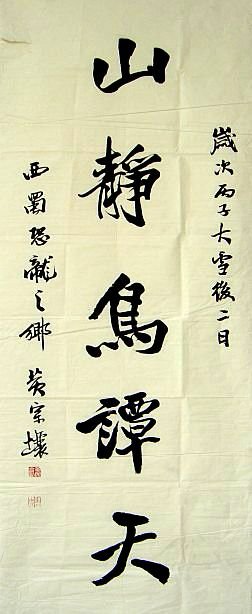 歲次丙子大雪後二日
山靜鳥譚天
西蜀恐龍之鄉 黃宗壤